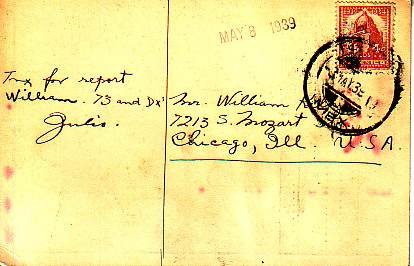 MAY 8 1939
Tnx for report
William. 73 and Dx'
Julio.
Mr. William
7213 S. Mozart
Chicago, Ill. U.S.A.